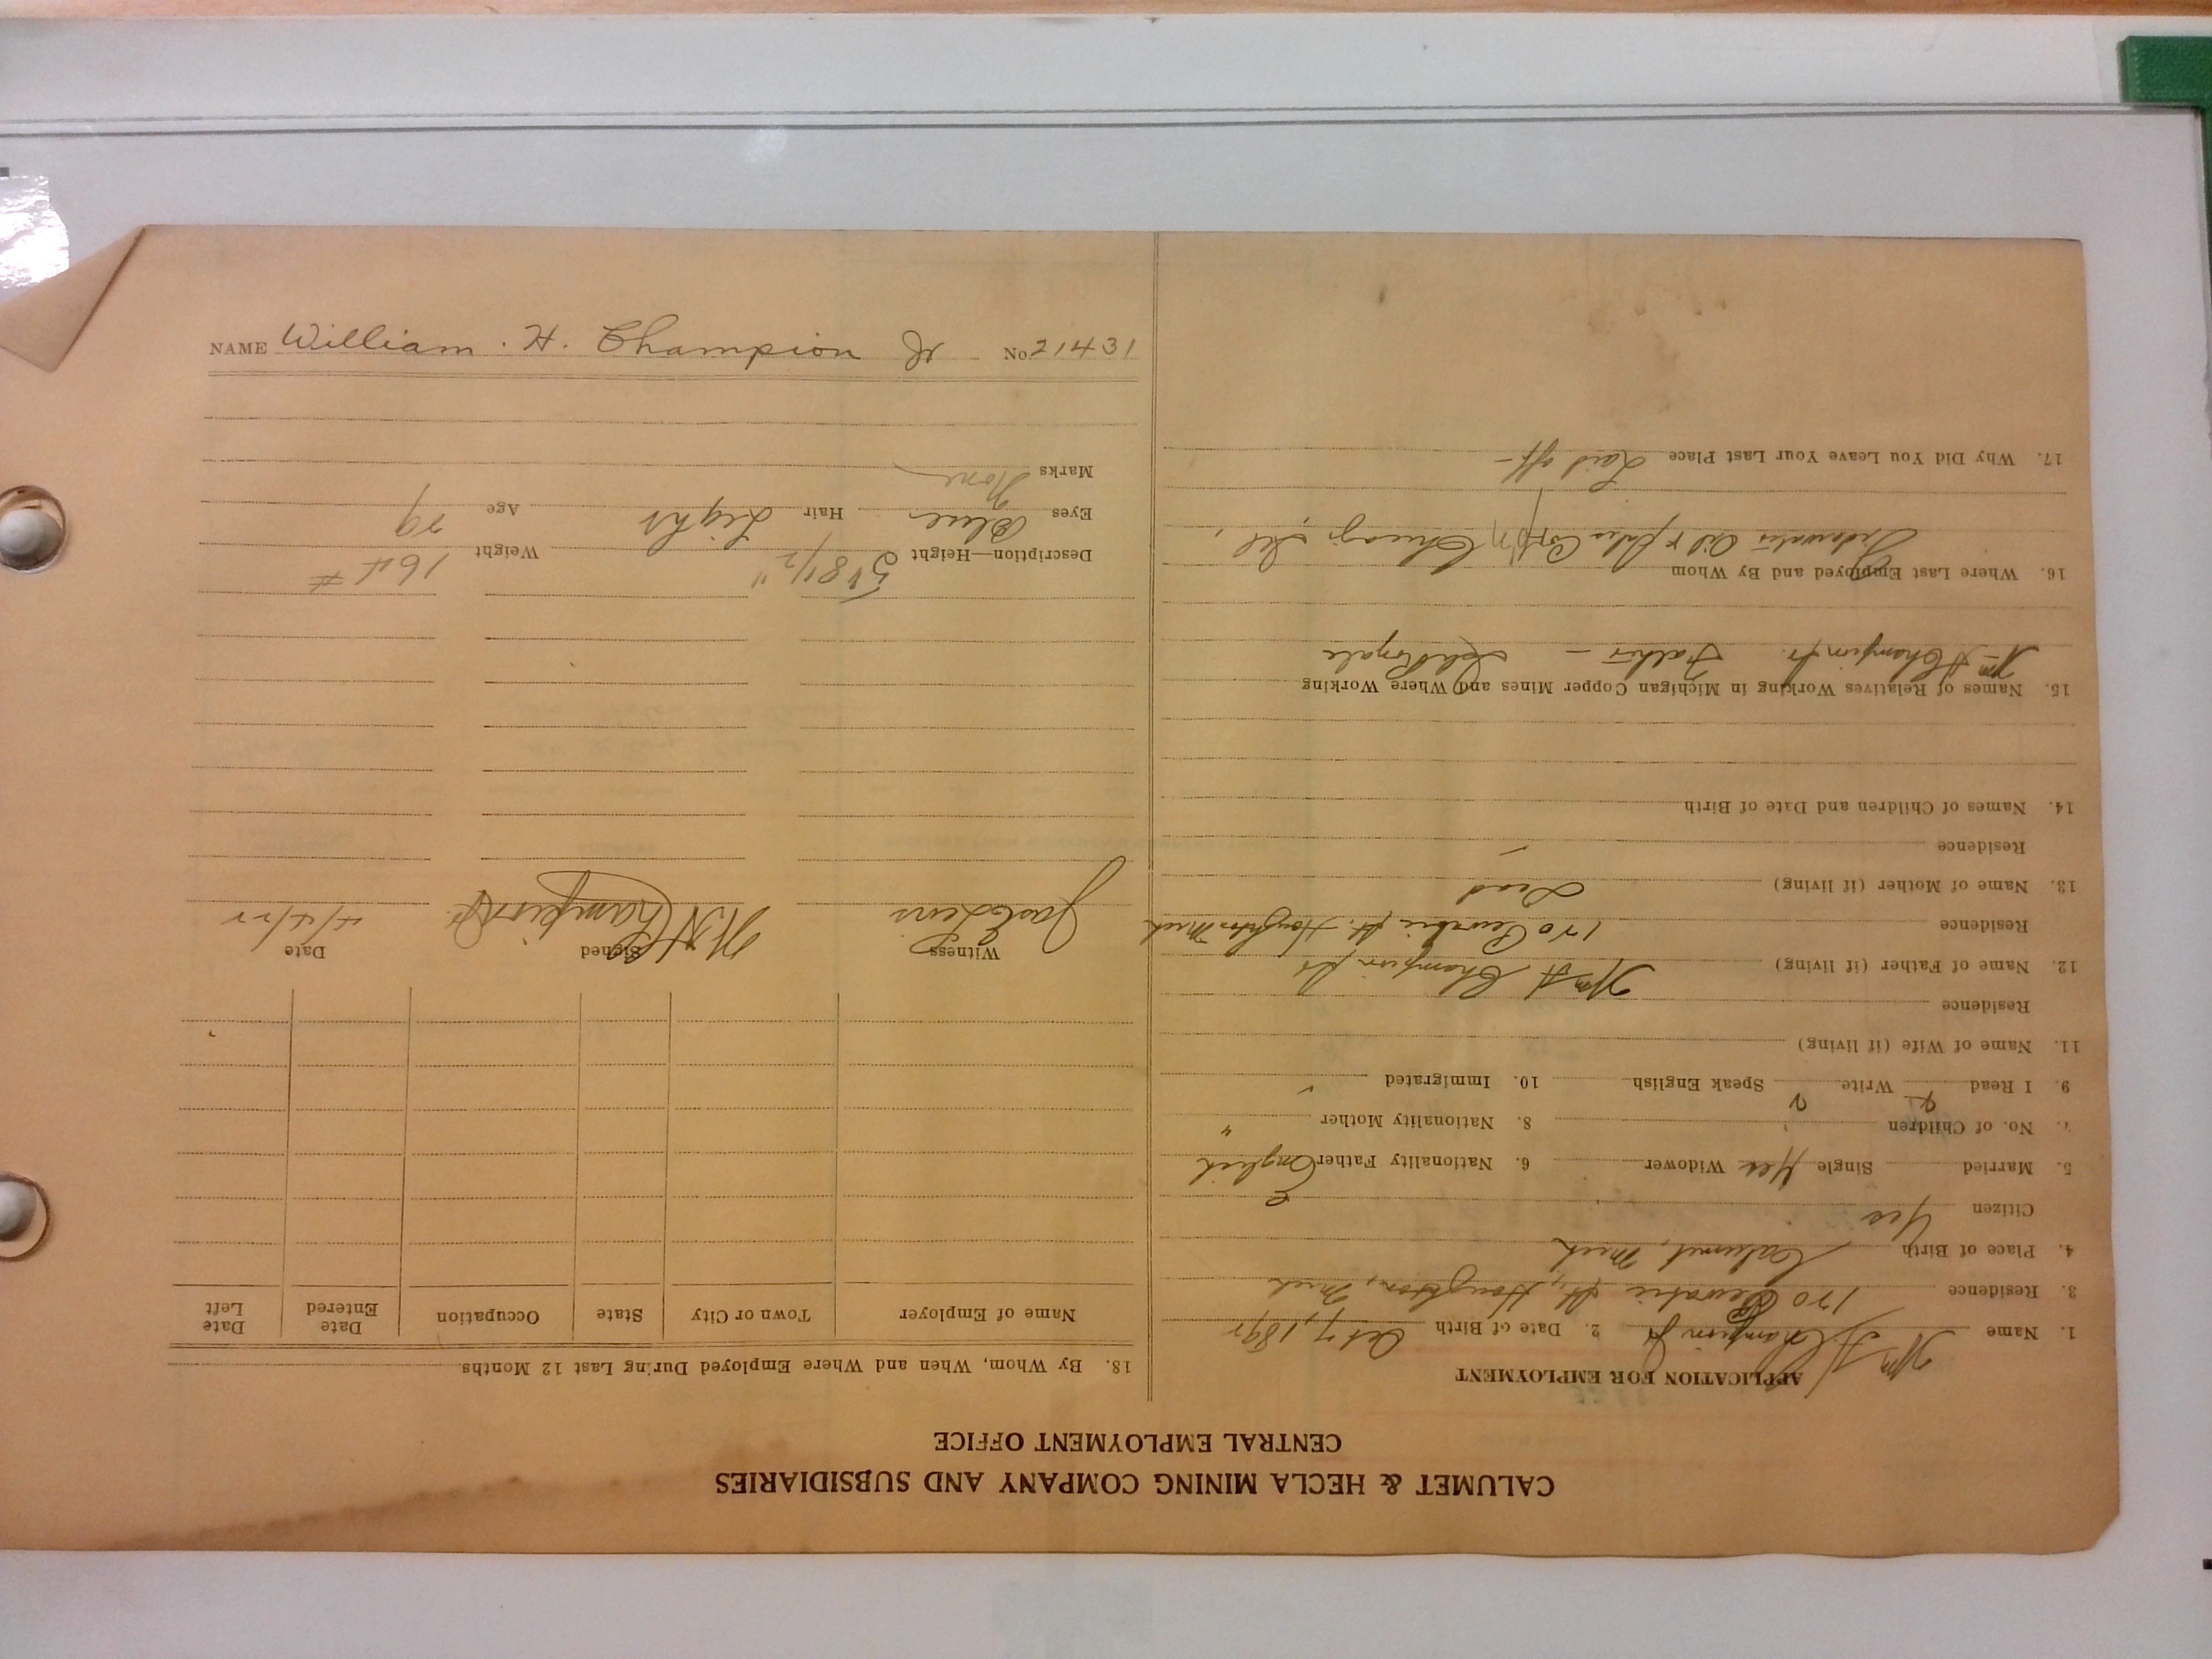 CALUMET & HECLA MINING COMPANY AND SUBSIDIARIES
CENTRAL EMPLOYMENT OFFICE
APPLICATION FOR EMPLOYMENT
1. Name Wm H Champion Jr 2. Date of Birth Oct 7, 1892
3. Residence 120 Pewabic St, Houghton, Mich
4. Place of Birth Calumet, Mich
Citizen Yes
5. Married Single Yes Widower 6. Nationality Father English
7. No. of Children 8. Nationality Mother "
9. I Read Write Speak English 10. Immigrated
11. Name of Wife (if living)
Residence
12. Name of Father (if living) Wm H Champion Sr
Residence 120 Pewabic St. Houghton Mich
13. Name of Mother (if living) Dead
Residence -
14. Names of Children and Date of Birth
15. Names of Relatives Working in Michigan Copper Mines and Where Working
Wm H Champion Sr. Father - Isle Royale
16. Where Last Employed and By Whom
Oil & Sales Corp'n Chicago, Ill,
17. Why Did You Leave Your Last Place Laid off-
18. By Whom, When and Where Employed During Last 12 Months
Name of Employer Town or City State Occupation Date Entered Date Left
Witness Signed Date
W H Champion Jr. 4/4/22
Description—Height 5' 8 1/2" Weight 164 #
Eyes Blue Hair Light Age 29
Marks None
NAME William. H. Champion Jr No 21431